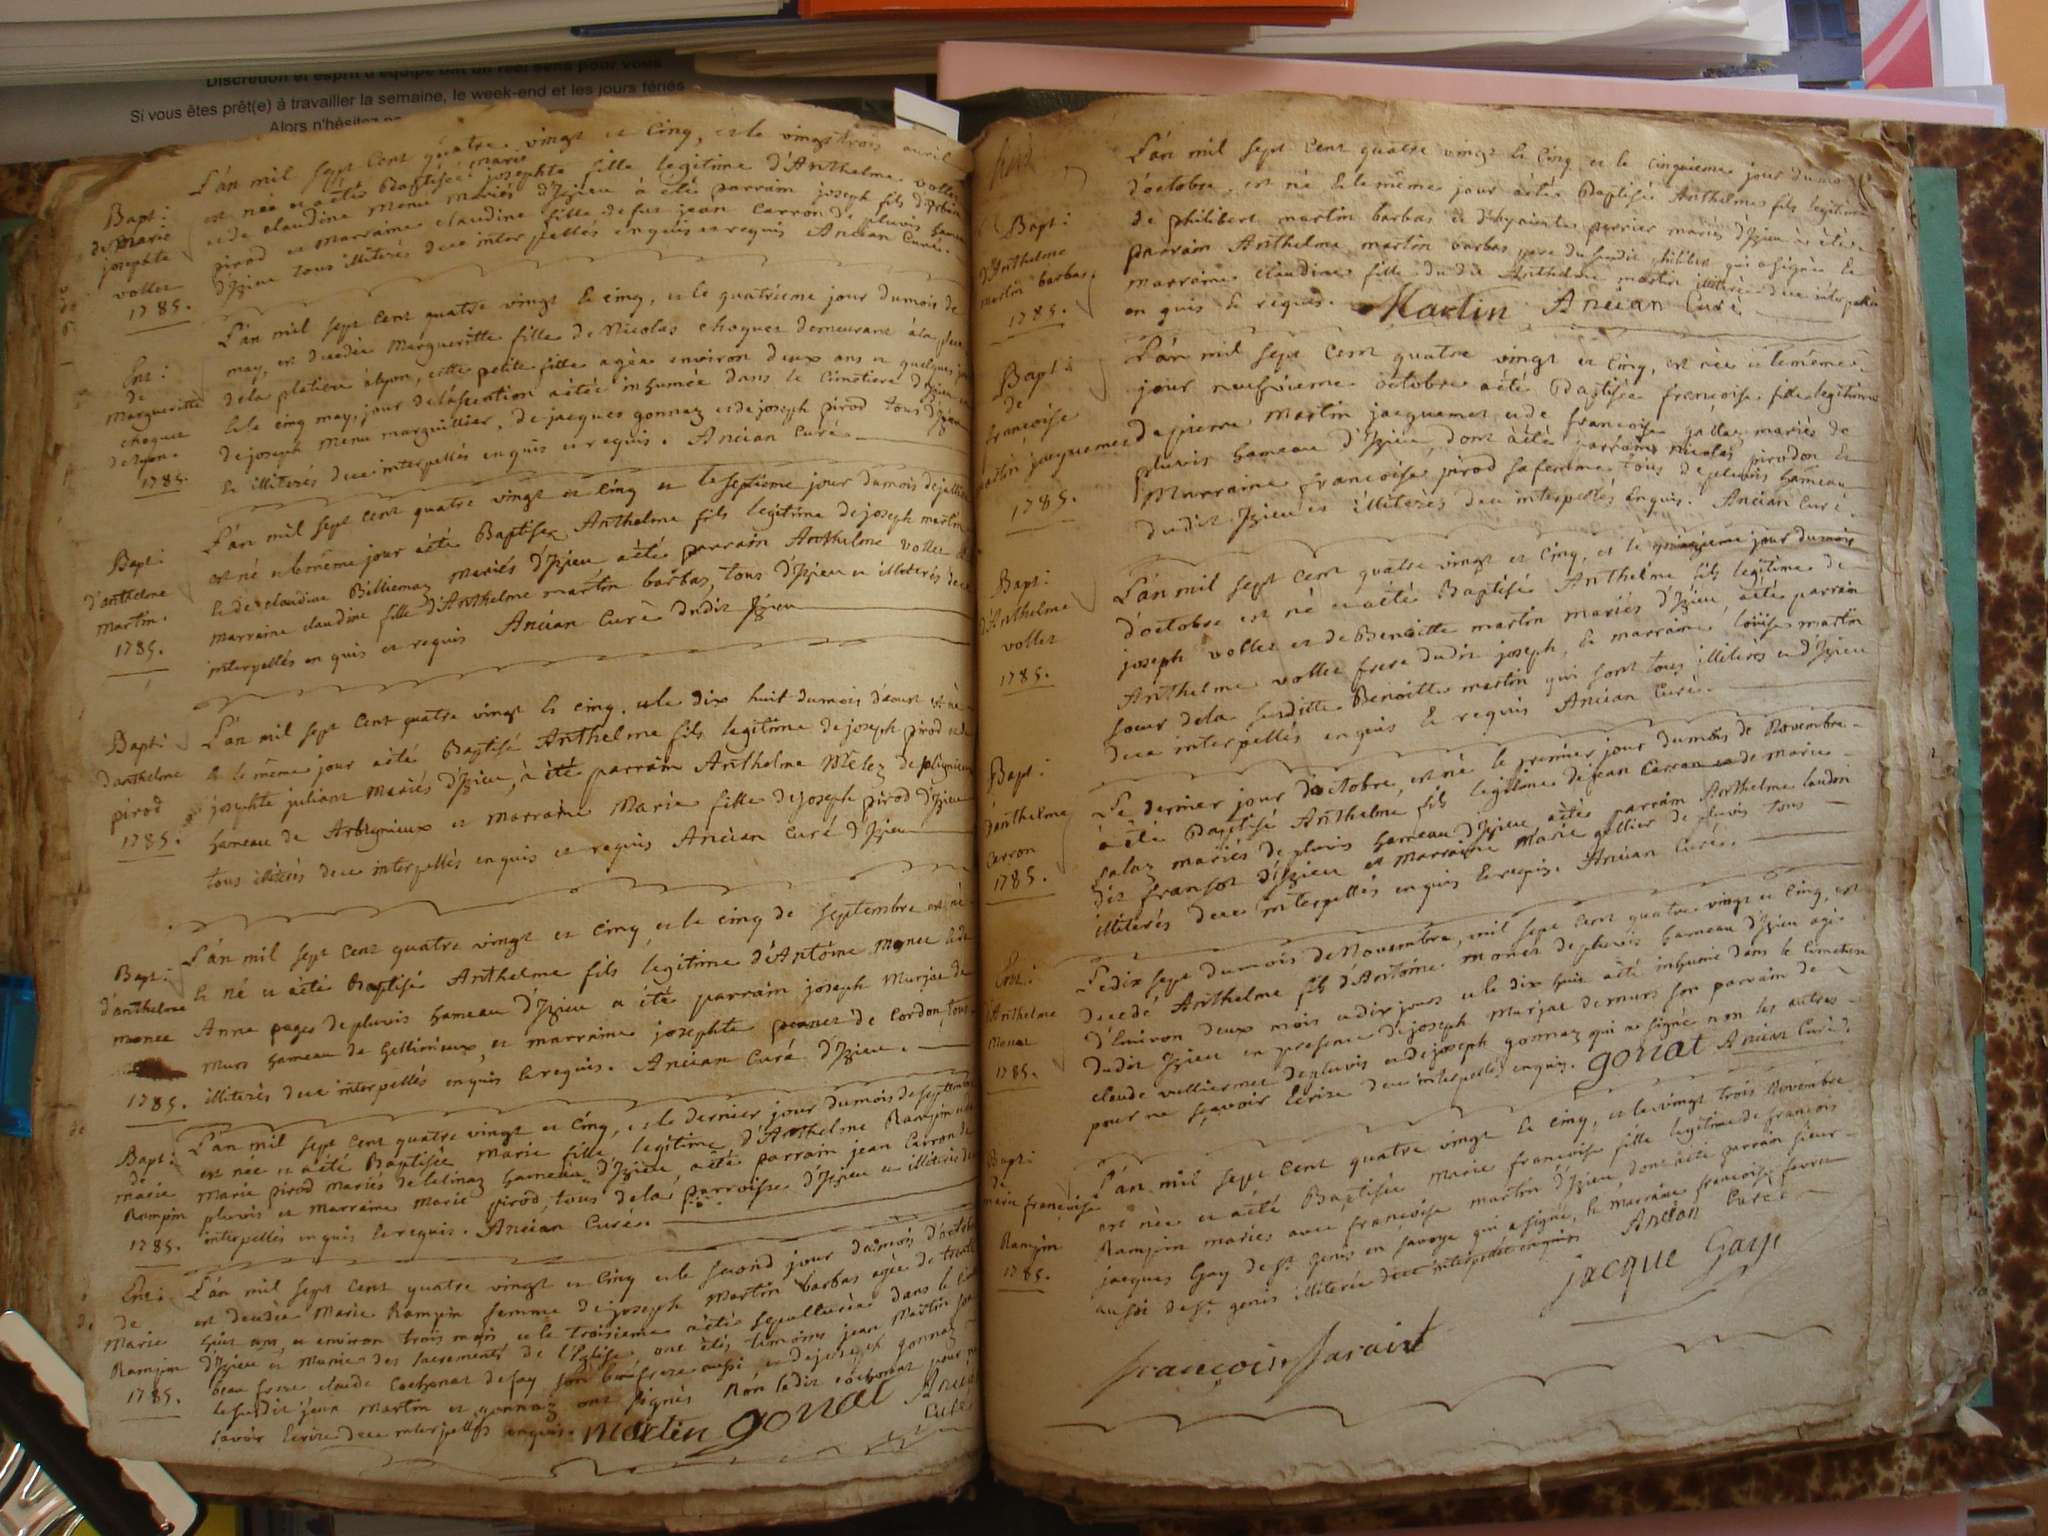 Discrétion et esprit d'équipe ont un réel sens pour vous
Si vous êtes prêt(e) à travailler la semaine, le week-end et les jours fériés
Alors n'hésitez
Bapt:
de Marie
josephte
vollet
1785.
L'án mil sept cent quatre vingt et Cinq, et le vingt trois avril
est née et a étés Baptisée marie josephte fille legitime d'Anthelme vollet
et de claudine Menu Mariés d'Izieu à été parrain joseph fils d'
pirod et Marraine claudine fille de fut jean Carron de pluvis hameau
d'Izieu tous illiterés de ce interpellés enquis et requis Ancian Curé.
Ent:
de
Margueritte
choquet
de lyon
1785.
L'án mil sept cent quatre vingt et cinq, et le quatrieme jour du mois de
may, est decedée Margueritte fille de Nicolas choquet demeurant à la place
de la platiere à lyon, cette petite fille agèe environ deux ans et quelques
et le cinq may, jour de l'ascention a étée inhumée dans le Cimetiere d'Izieu
de joseph menu marguillier, de jacques gonnaz et de joseph pirod tous d'Izieu
et illiterés de ce interpellés enquis et requis. Ancian Curé
Bapt:
d'anthelme
Martin.
1785.
L'án mil sept cent quatre vingt et Cinq et le septieme jour du mois de juillet
est né et le même jour à été Baptisé Anthelme fils legitime de joseph martin
et de claudine Billiemaz Mariés d'Izieu a été parrain Anthelme vollet et
marraine claudine fille d'Anthelme martin barbas, tous d'Izieu et illiterés de ce
interpellés en quis et requis Ancian Curè dudit Izieu
Bapt:
d'anthelme
pirod
1785.
L'án mil sept Cent quatre vingt et cinq, et le dix huit du mois d'aoust est né
et le même jour a été Baptisé Anthelme fils legitime de joseph pirod et de
josephte juliant Mariés d'Izieu, à été parrain Anthelme Melez de pligneux
hameau de Arbignieux et Marraine Marie fille de joseph pirod d'Izieu
tous illiterés de ce interpellés enquis et requis Ancian Curé d'Izieu
Bapt:
d'anthelme
monet
1785.
L'án mil sept cent quatre vingt et Cinq, et le cinq de Septembre est né
et né et a été Baptisé Anthelme fils legitime d'Antoine Monet et de
Anne pages de pluvis hameau d'Izieu a été parrain joseph Murjat de
murs hameau de Gellinieux, et marraine josephte de Cordon, tous
illiterés de ce interpellés enquis et requis. Ancian Curé d'Izieu.
Bapt:
de
marie
Rampin
1785.
L'án mil sept cent quatre vingt et Cinq, et le dernier jour du mois de septembre
est née et a été Baptisée Marie fille legitime d'Anthelme Rampin et de
Marie pirod Mariés de lelinaz hameau d'Izieu, a été parrain jean Carron de
pluvis et Marraine Marie pirod, tous de la parroisse d'Izieu et illiterés de ce
interpellés en quis et requis. Ancian Curé.
Ent:
de
Marie
Rampin
1785.
L'án mil sept cent quatre vingt et Cinq et le second jour du mois d'octobre
est decedée Marie Rampin femme de joseph Martin barbas agée de trente
huit ans, et environ trois mois et le troisieme a étée sepulturée dans le
d'Izieu et Munie des sacrements de l'Eglise, ont étés temoins jean Martin son
beau frere claude Cochonat de fay son beaufrere aussi et de joseph gonnaz
le susdit jean Martin et gonnaz ont signés Non le dit cochonat pour ne
savoir Ecrire de ce interpellés enquis. Martin gonat Ancian
Curé
Bapt:
d'Anthelme
Martin barbas
1785.
L'án mil sept Cent quatre vingt et Cinq et le cinquieme jour du mois
d'octobre, est né et le même jour a étés Baptisé Anthelme fils legitime
de philibert martin barbas et d'hyacinte perrier mariés d'Izieu a été
parrain Anthelme martin barbas pere du susdit philibert qui a signée et
marraine claudine fille du dit Anthelme martin illiterée de ce interpellée
en quis et requis. Martin Ancian Curé
Bapt:
de
francoise
martin jacquemet
1785.
L'án mil sept Cent quatre vingt et Cinq, est née et le même
jour neufvieme octobre a été Baptisée francoise fille legitime
de pierre Martin jacquemet et de francoise gallaz mariés de
pluvis hameau d'Izieu, dont à été parrain nicolas pirodon et
Marraine francoise pirod sa femme tous de pluvis hameau
dudit Izieu et illiterés de ce interpellés enquis. Ancian Curé.
Bapt:
d'Anthelme
vollet
1785.
L'án mil sept Cent quatre vingt et Cinq, et le jour du mois
d'octobre est né et a été Baptisé Anthelme fils legitime de
joseph vollet et de Benoitte martin mariés d'Izieu, a été parrain
Anthelme vollet frere dudit joseph, et marraine loüise martin
soeur de la susditte Benoitte martin qui sont tous illiteres et d'Izieu
de ce interpellés enquis et requis Ancian Curé.
Bapt:
d'anthelme
Carron
1785.
Le dernier jour d'octobre, est né le premier jour du mois de Novembre
à été Baptisé Anthelme fils legitime de jean Carron et de Marie
salaz mariés de pluvis hameau d'Izieu a étés parrain Anthelme laudin
dit franson d'Izieu et Marraine Marie gallier de pluvis tous
illiterés de ce interpellés enquis et requis. Ancian Curé.
Ent:
d'Anthelme
Monet
1785.
Le dix sept du mois de Novembre, mil sept cent quatre vingt et Cinq, est
decedé Anthelme fils d'Antoine monet de pluvis hameau d'Izieu agé
d'Environ deux mois et dix jours et le dix huit a été inhumé dans le Cimetiere
dudit Izieu en presence de joseph Murjat de murs son parrain de
claude vulliermet de pluvis et de joseph gonnaz qui a signé non les autres
pour ne sçavoir Ecrire de ce interpellés enquis. gonat Ancian Curé.
Bapt:
de
marie françoise
Rampin
1785.
L'án mil sept Cent quatre vingt et Cinq, et le vingt trois Novembre
est née et a été Baptisée Marie francoise fille legitime de francois
Rampin mariés avec francoise martin d'Izieu, dont a été parrain sieur
jacques Gay de St. genis en savoye qui a signé, et marraine francoise favre
aussi de St. genis illiterée de ce interpellée enquise Ancian Curé
jacque Gaye
françois